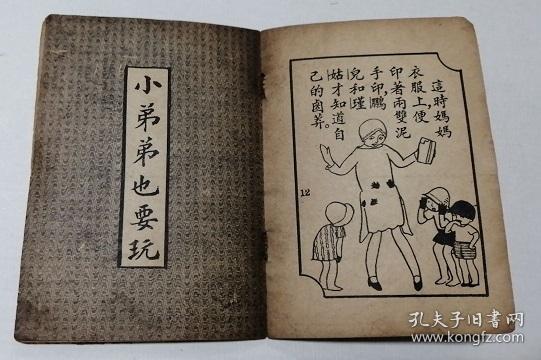 小弟弟也要玩
這時媽媽
衣服上,便
印著兩雙泥
手印,鵬
兒和瑾
姑才知道自
己的鹵莽。
12
孔夫子旧书网
www.kongfz.com